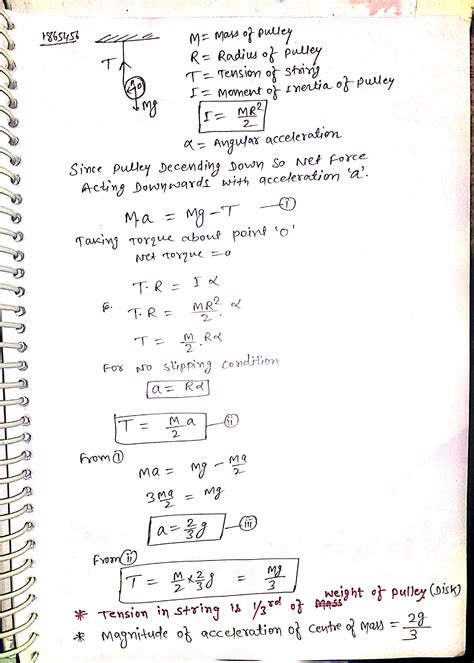 1865456
M = Mass of pulley
R = Radius of pulley
T = Tension of string
I = Moment of Inertia of Pulley
I = MR²/2
α = Angular acceleration
T
O
Mg
Since Pulley Decending Down so Net Force
Acting Downwards with acceleration 'a'.
Ma = Mg - T —(i)
Taking Torque about point 'O'
Net Torque = 0
T.R = I α
T.R = MR²/2 . α
T = M/2 . Rα
For No slipping condition
a = Rα
T = M/2 a —(ii)
From (i)
Ma = Mg - Ma/2
3Ma/2 = Mg
a = 2/3 g —(iii)
From (ii)
T = M/2 × 2/3 g = Mg/3
* Tension in string is 1/3rd of weight of pulley (Disk)
* Magnitude of acceleration of centre of Mass = 2g/3